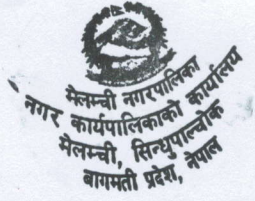 मेलम्ची नगरपालिका
नगर कार्यपालिकाको कार्यालय
मेलम्ची, सिन्धुपाल्चोक
बागमती प्रदेश, नेपाल